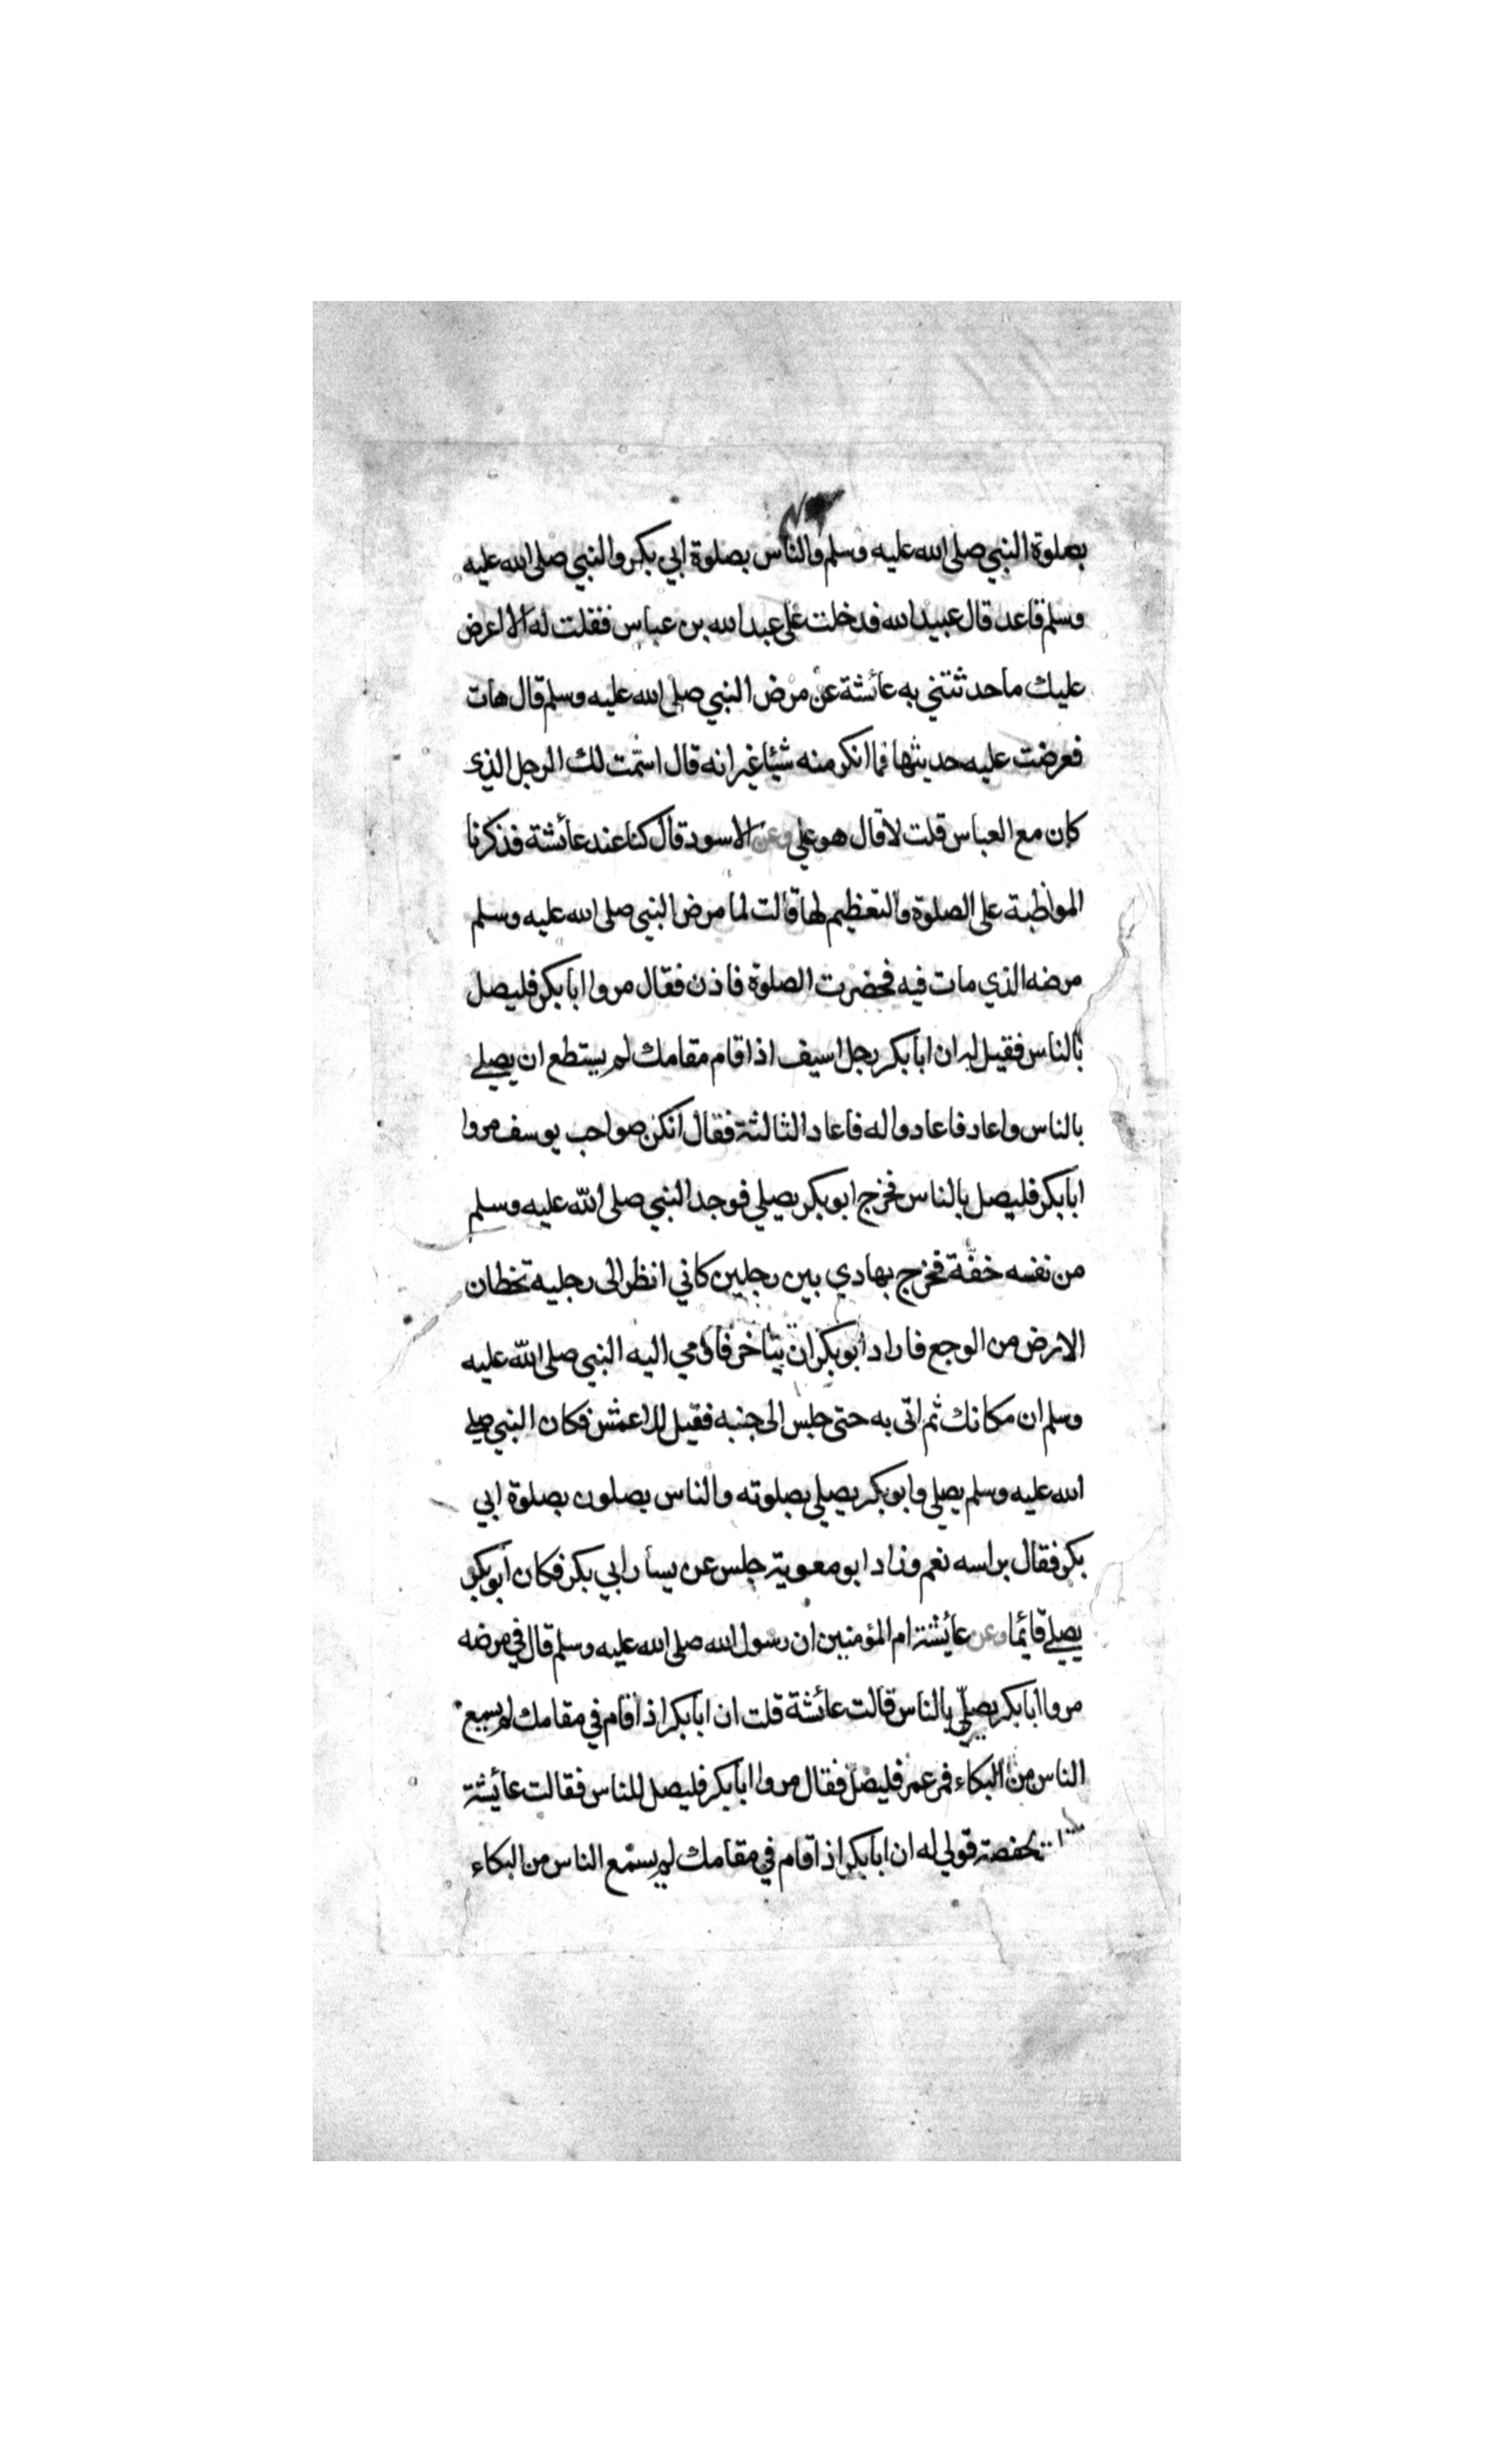 بصلوة النبي صلى الله عليه وسلم والناس بصلوة ابي بكر والنبي صلى الله عليه
وسلم قاعد قال عبيد الله فدخلت على عبد الله بن عباس فقلت له الا اعرض
عليك ما حدثتني به عائشة عن مرض النبي صلى الله عليه وسلم قال هات
فعرضت عليه حديثها فما انكر منه شيئا غير انه قال اسمت لك الرجل الذي
كان مع العباس قلت لا قال هو علي وعن الاسود قال كنا عند عائشة فذكرنا
المواظبة على الصلوة والتعظيم لها قالت لما مرض النبي صلى الله عليه وسلم
مرضه الذي مات فيه فحضرت الصلوة فاذن فقال مروا ابا بكر فليصل
بالناس فقيل له ان ابا بكر رجل اسيف اذا قام مقامك لم يستطع ان يصلي
بالناس واعاد فاعادوا له فاعاد الثالثة فقال انكن صواحب يوسف مروا
ابا بكر فليصل بالناس فخرج ابو بكر يصلي فوجد النبي صلى الله عليه وسلم
من نفسه خفة فخرج يهادي بين رجلين كاني انظر الى رجليه تخطان
الارض من الوجع فاراد ابو بكر ان يتاخر فاومي اليه النبي صلى الله عليه
وسلم ان مكانك ثم اتى به حتى جلس الى جنبه فقيل للاعمش فكان النبي صلى
الله عليه وسلم يصلي وابو بكر يصلي بصلوته والناس يصلون بصلوة ابي
بكر فقال براسه نعم وزاد ابو معوية جلس عن يسار ابي بكر فكان ابو بكر
يصلي قائما وعن عائشة ام المؤمنين ان رسول الله صلى الله عليه وسلم قال في مرضه
مروا ابا بكر يصلي بالناس قالت عائشة قلت ان ابا بكر اذا قام في مقامك لم يسمع
الناس من البكاء فمر عمر فليصل فقال مروا ابا بكر فليصل للناس فقالت عائشة
لحفصة قولي له ان ابا بكر اذا قام في مقامك لم يسمع الناس من البكاء